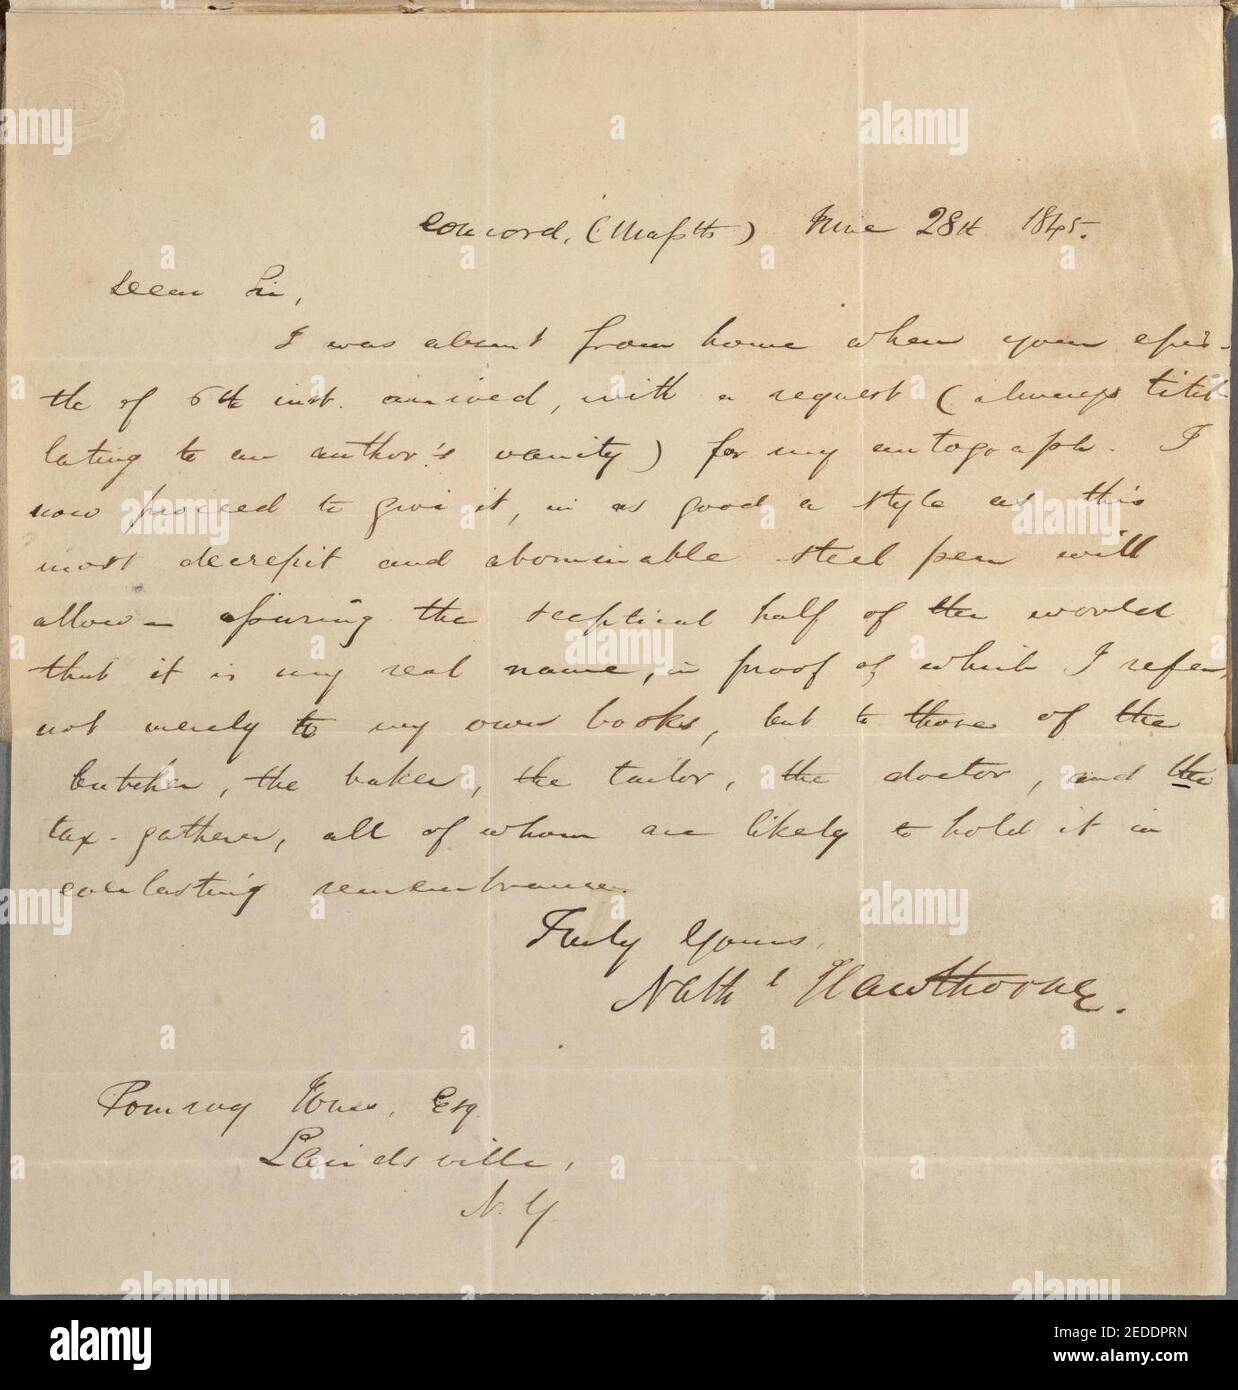 Concord, (Massts) June 28th 1845.
Dear Sir,
I was absent from home when your epis-
tle of 6th inst. arrived, with a request (always titil
lating to an author's vanity) for my autograph. I
now proceed to give it, in as good a style as this
most decrepit and abominable steel pen will
allow— assuring the sceptical half of the world
that it is my real name, in proof of which I refer,
not merely to my own books, but to those of the
butcher, the baker, the tailor, the doctor, and the
tax-gatherer, all of whom are likely to hold it in
everlasting remembrance.
Truly Yours,
Nathl Hawthorne.
Pomroy Jones, Esq
Lairdsville,
N. Y.
alamy
Image ID: 2EDDPRN
www.alamy.com